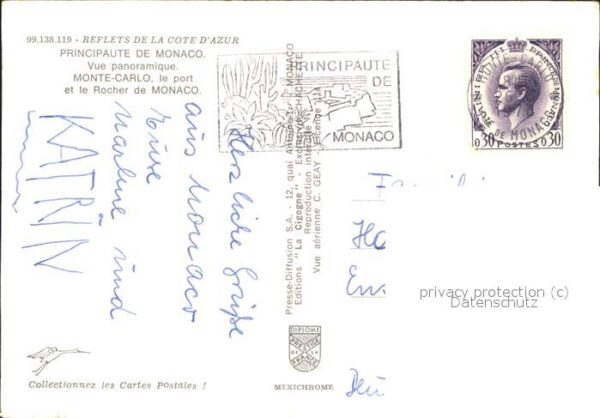 99.138.119 - REFLETS DE LA COTE D'AZUR
PRINCIPAUTE DE MONACO.
Vue panoramique.
MONTE-CARLO, le port
et le Rocher de MONACO.
PRINCIPAUTE
DE
MONACO
MONTE-CARLO
Pte DE MONACO
0,30 POSTES 0,30
Herzliche Grüße
aus Monaco
Eure
Marlene und
KATRIN
Presse-Diffusion S.A. - 12, quai Antoine-1er - MONACO
Editions "La Cigogne" - Exclusivité HACHETTE
Reproduction interdite
Vue aérienne C. GEAY - Licence
privacy protection (c)
Datenschutz
DIPLOME
PRESTIGE
DE LA
FRANCE
Collectionnez les Cartes Postales !
MEXICHROME